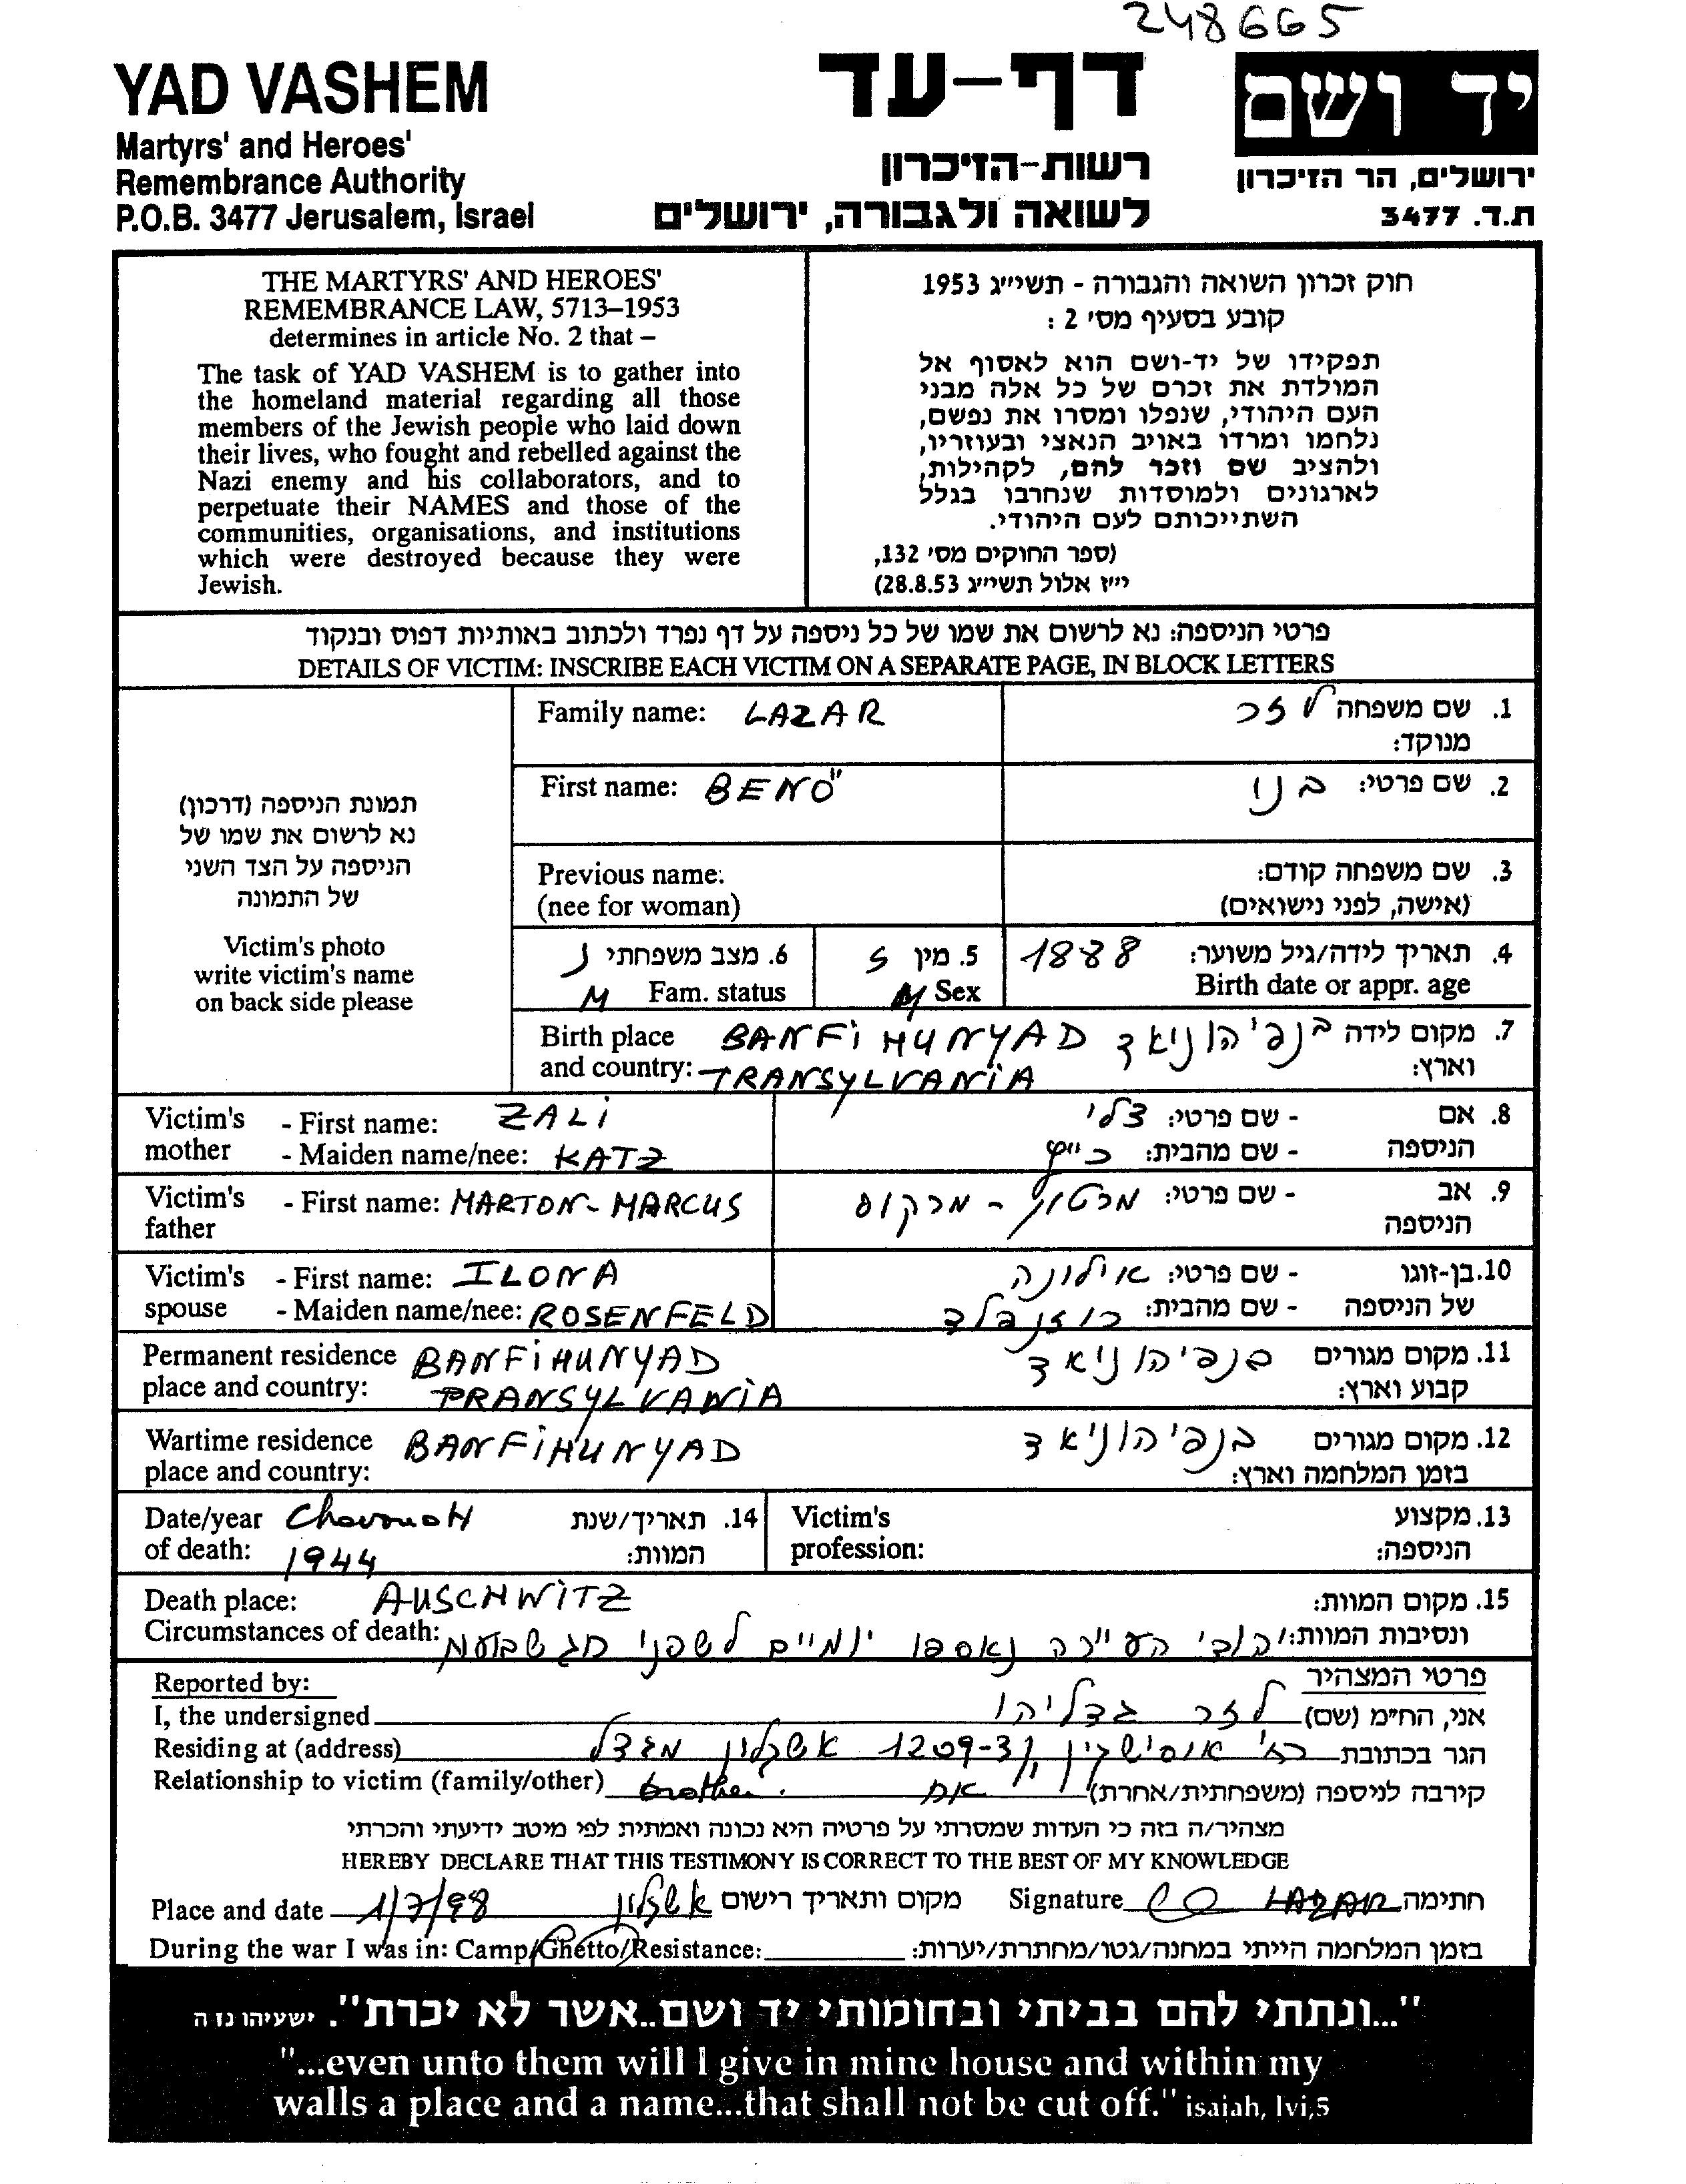 248665
YAD VASHEM
Martyrs' and Heroes'
Remembrance Authority
P.O.B. 3477 Jerusalem, Israel
דף-עד
רשות-הזיכרון
לשואה ולגבורה, ירושלים
יד ושם
ירושלים, הר הזיכרון
ת.ד. 3477
THE MARTYRS' AND HEROES'
REMEMBRANCE LAW, 5713–1953
determines in article No. 2 that –
The task of YAD VASHEM is to gather into
the homeland material regarding all those
members of the Jewish people who laid down
their lives, who fought and rebelled against the
Nazi enemy and his collaborators, and to
perpetuate their NAMES and those of the
communities, organisations, and institutions
which were destroyed because they were
Jewish.
חוק זכרון השואה והגבורה - תשי״ג 1953
קובע בסעיף מס' 2 :
תפקידו של יד-ושם הוא לאסוף אל
המולדת את זכרם של כל אלה מבני
העם היהודי, שנפלו ומסרו את נפשם,
נלחמו ומרדו באויב הנאצי ובעוזריו,
ולהציב שם וזכר להם, לקהילות,
לארגונים ולמוסדות שנחרבו בגלל
השתייכותם לעם היהודי.
(ספר החוקים מס' 132,
י״ז אלול תשי״ג 28.8.53)
פרטי הניספה: נא לרשום את שמו של כל ניספה על דף נפרד ולכתוב באותיות דפוס ובנקוד
DETAILS OF VICTIM: INSCRIBE EACH VICTIM ON A SEPARATE PAGE, IN BLOCK LETTERS
תמונת הניספה (דרכון)
נא לרשום את שמו של
הניספה על הצד השני
של התמונה
Victim's photo
write victim's name
on back side please
Family name: LAZAR
1. שם משפחה לזר
מנוקד:
First name: BENŐ
2. שם פרטי: בנו
Previous name:
(nee for woman)
3. שם משפחה קודם:
(אישה, לפני נישואים)
4. תאריך לידה/גיל משוער: 1888
Birth date or appr. age
5. מין ז
M Sex
6. מצב משפחתי נ
M Fam. status
Birth place BANFI HUNYAD
and country: TRANSYLVANIA
7. מקום לידה בנפי הוניאד
וארץ:
Victim's - First name: ZALI
mother - Maiden name/nee: KATZ
8. אם - שם פרטי: צלי
הניספה - שם מהבית: כ״ץ
Victim's - First name: MARTON - MARCUS
father
9. אב - שם פרטי: מרטון - מרקוס
הניספה
Victim's - First name: ILONA
spouse - Maiden name/nee: ROSENFELD
10. בן-זוגו - שם פרטי: אילונה
של הניספה - שם מהבית: רוזנפלד
Permanent residence BANFIHUNYAD
place and country: TRANSYLVANIA
11. מקום מגורים בנפיהוניאד
קבוע וארץ:
Wartime residence BANFIHUNYAD
place and country:
12. מקום מגורים בנפיהוניאד
בזמן המלחמה וארץ:
Date/year Chavouot
of death: 1944
14. תאריך/שנת
המוות:
Victim's
profession:
13. מקצוע
הניספה:
Death place: AUSCHWITZ
15. מקום המוות:
Circumstances of death:
ונסיבות המוות: יהודי העיירה נאספו יומיים לפני חג שבועות
פרטי המצהיר
Reported by:
I, the undersigned
אני, הח״מ (שם) לזר גדליהו
Residing at (address)
הגר בכתובת 1209-3 אשקלון מגדל
Relationship to victim (family/other) brother.
קירבה לניספה (משפחתית/אחרת) אח
מצהיר/ה בזה כי העדות שמסרתי על פרטיה היא נכונה ואמתית לפי מיטב ידיעתי והכרתי
HEREBY DECLARE THAT THIS TESTIMONY IS CORRECT TO THE BEST OF MY KNOWLEDGE
Place and date 1/7/98 מקום ותאריך רישום אשקלון
Signature LAZAR חתימה
During the war I was in: Camp/Ghetto/Resistance:
בזמן המלחמה הייתי במחנה/גטו/מחתרת/יערות:
"...ונתתי להם בביתי ובחומותי יד ושם..אשר לא יכרת". ישעיהו נז ה
"...even unto them will I give in mine house and within my
walls a place and a name...that shall not be cut off." isaiah, lvi,5